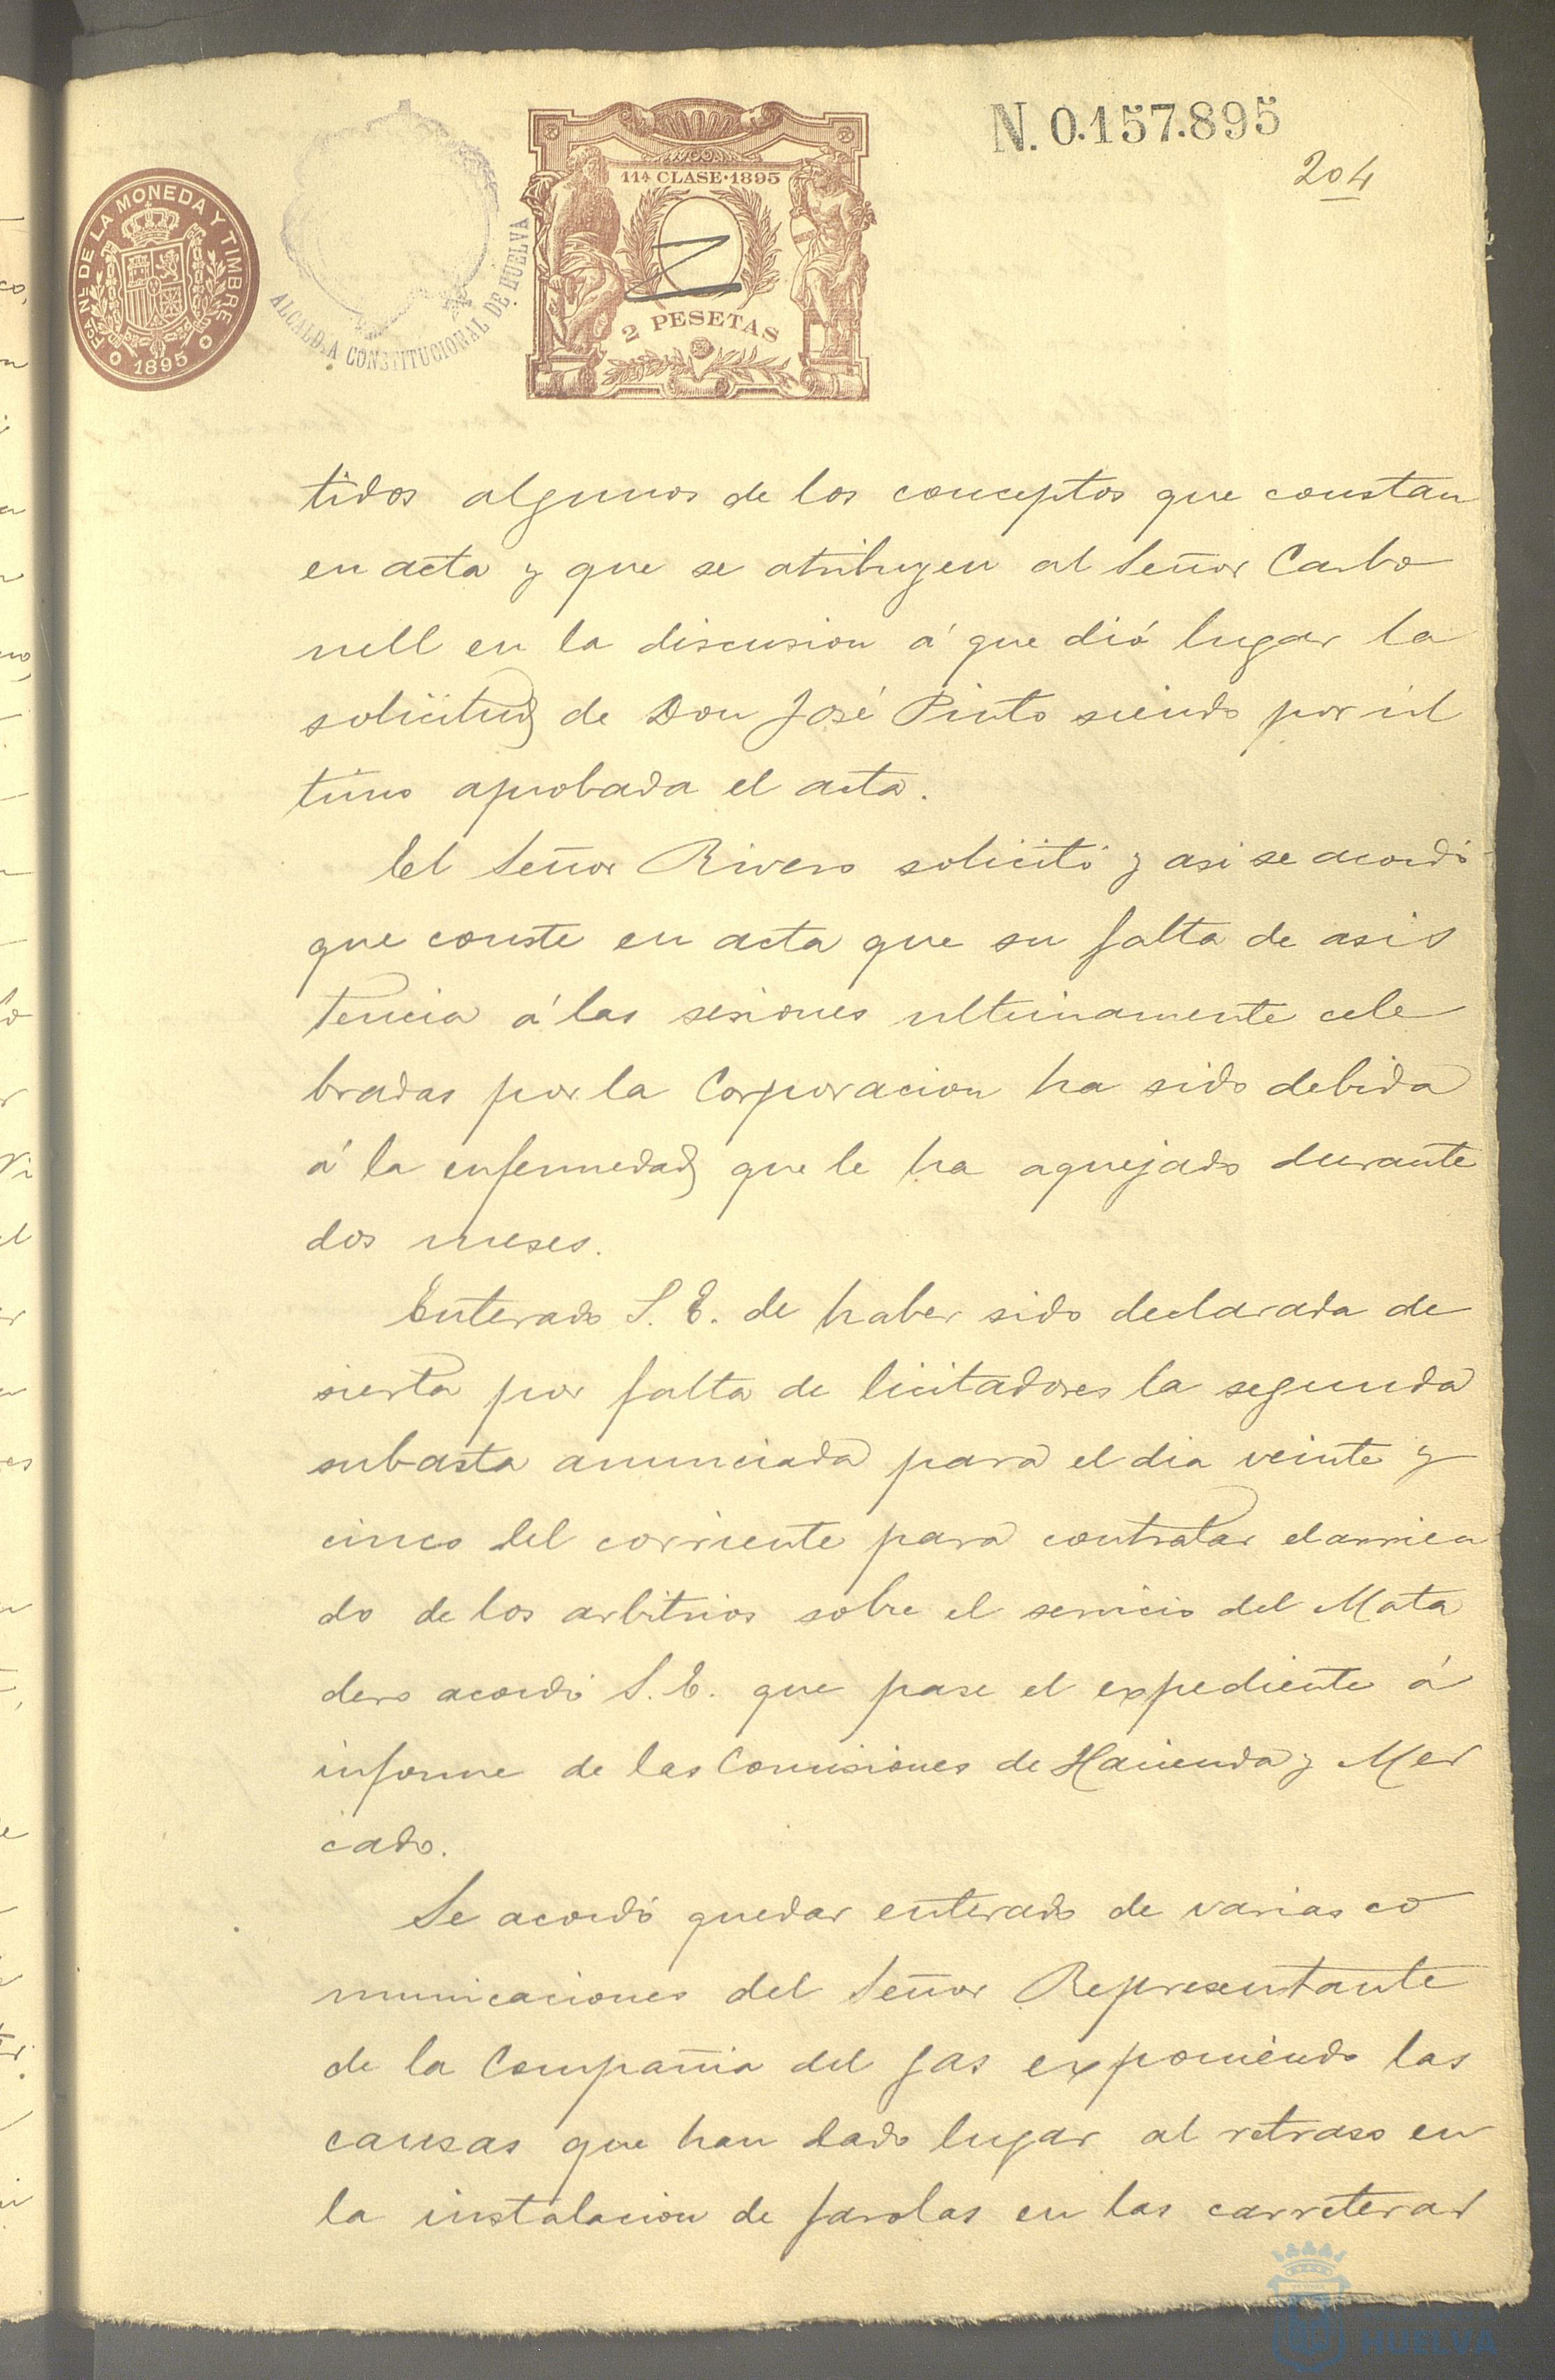 N. 0.157.895
204
FCA NL DE LA MONEDA Y TIMBRE
1895
ALCALDIA CONSTITUCIONAL DE HUELVA
11ª CLASE·1895
2 PESETAS
tidos algunos de los conceptos que constan
en acta y que se atribuyen al Señor Carbo
nell en la discusion á que dió lugar la
solicitud de Don José Pinto siendo por úl
timo aprobada el acta.
El Señor Rivero solicitó y asi se acordó
que conste en acta que su falta de asis
tencia á las sesiones ultimamente cele
bradas por la Corporacion ha sido debida
á la enfermedad que le ha aquejado durante
dos meses.
Enterado S. E. de haber sido declarada de
sierta por falta de licitadores la segunda
subasta anunciada para el dia veinte y
cinco del corriente para contratar el arrien
do de los arbitrios sobre el servicio del Mata
dero acordó S. E. que pase el expediente á
informe de las Comisiones de Hacienda y Mer
cado.
Se acordó quedar enterado de varias co
municaciones del Señor Representante
de la Compañia del gas exponiendo las
causas que han dado lugar al retraso en
la instalacion de farolas en las carreteras
HUELVA